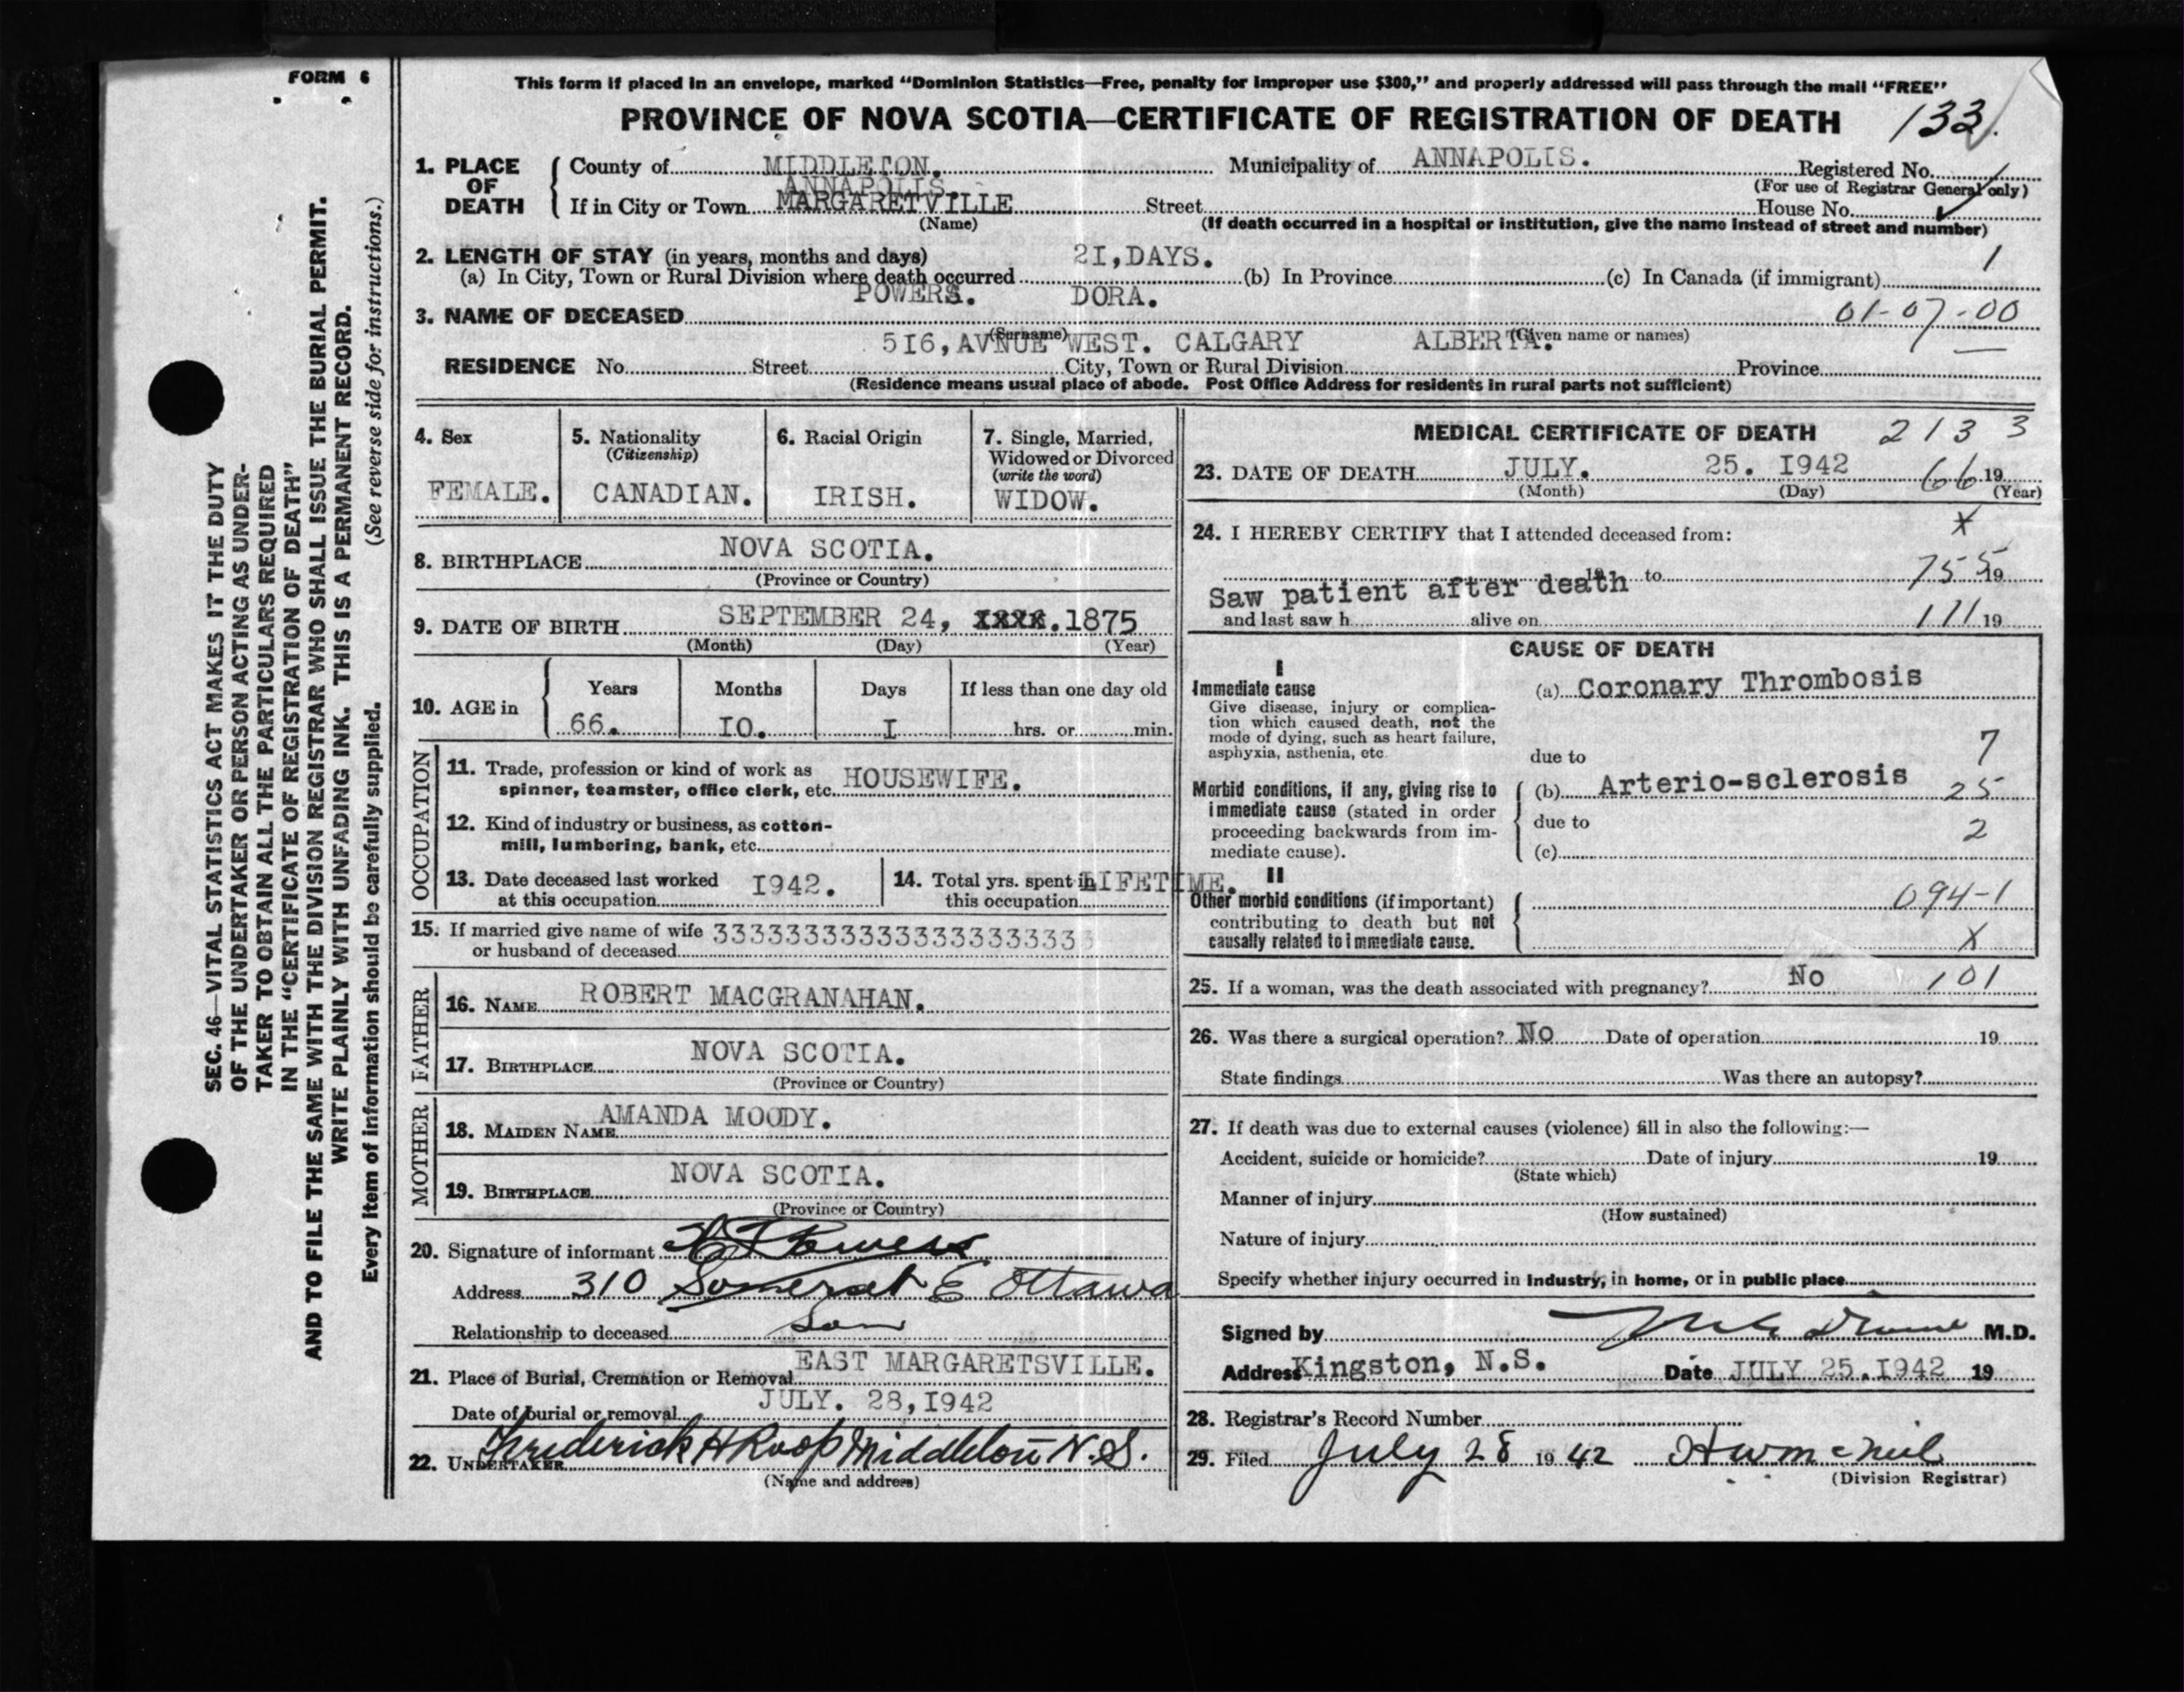 FORM 6
This form if placed in an envelope, marked “Dominion Statistics—Free, penalty for improper use $300,” and properly addressed will pass through the mail “FREE”
PROVINCE OF NOVA SCOTIA—CERTIFICATE OF REGISTRATION OF DEATH 133
SEC. 46—VITAL STATISTICS ACT MAKES IT THE DUTY
OF THE UNDERTAKER OR PERSON ACTING AS UNDER-
TAKER TO OBTAIN ALL THE PARTICULARS REQUIRED
IN THE “CERTIFICATE OF REGISTRATION OF DEATH”
AND TO FILE THE SAME WITH THE DIVISION REGISTRAR WHO SHALL ISSUE THE BURIAL PERMIT.
WRITE PLAINLY WITH UNFADING INK. THIS IS A PERMANENT RECORD.
Every item of information should be carefully supplied. (See reverse side for instructions.)
1. PLACE OF DEATH
County of MIDDLETON. Municipality of ANNAPOLIS. Registered No.
ANNAPOLIS. (For use of Registrar General only)
If in City or Town MARGARETVILLE Street House No.
(Name) (If death occurred in a hospital or institution, give the name instead of street and number)
2. LENGTH OF STAY (in years, months and days) 2I,DAYS. 1
(a) In City, Town or Rural Division where death occurred (b) In Province (c) In Canada (if immigrant)
POWERS. DORA. 01-07-00
3. NAME OF DECEASED
(Surname) (Given name or names)
5I6,AVNUE WEST. CALGARY ALBERTA.
RESIDENCE No. Street City, Town or Rural Division Province
(Residence means usual place of abode. Post Office Address for residents in rural parts not sufficient)
4. Sex
FEMALE.
5. Nationality
(Citizenship)
CANADIAN.
6. Racial Origin
IRISH.
7. Single, Married,
Widowed or Divorced
(write the word)
WIDOW.
8. BIRTHPLACE NOVA SCOTIA.
(Province or Country)
9. DATE OF BIRTH SEPTEMBER 24, .1875
(Month) (Day) (Year)
10. AGE in
Years Months Days If less than one day old
66. IO. I hrs. or min.
OCCUPATION
11. Trade, profession or kind of work as
spinner, teamster, office clerk, etc. HOUSEWIFE.
12. Kind of industry or business, as cotton-
mill, lumbering, bank, etc.
13. Date deceased last worked
at this occupation I942.
14. Total yrs. spent in
this occupation LIFETIME.
15. If married give name of wife 333333333333333333333
or husband of deceased
FATHER
16. NAME ROBERT MACGRANAHAN.
17. BIRTHPLACE NOVA SCOTIA.
(Province or Country)
MOTHER
18. MAIDEN NAME AMANDA MOODY.
19. BIRTHPLACE NOVA SCOTIA.
(Province or Country)
20. Signature of informant Powers
Address 310 Somerset E Ottawa
Relationship to deceased Son
21. Place of Burial, Cremation or Removal EAST MARGARETSVILLE.
Date of burial or removal JULY. 28,I942
22. UNDERTAKER Frederick H Roop Middleton N.S.
(Name and address)
MEDICAL CERTIFICATE OF DEATH 213 3
23. DATE OF DEATH JULY. 25. I942 66 19
(Month) (Day) (Year)
24. I HEREBY CERTIFY that I attended deceased from: X
19 to 755 19
Saw patient after death
and last saw h alive on 111 19
CAUSE OF DEATH
I
Immediate cause
Give disease, injury or complica-
tion which caused death, not the
mode of dying, such as heart failure,
asphyxia, asthenia, etc
(a) Coronary Thrombosis
due to 7
Morbid conditions, if any, giving rise to
immediate cause (stated in order
proceeding backwards from im-
mediate cause).
(b) Arterio-sclerosis 25
due to 2
(c)
II
Other morbid conditions (if important)
contributing to death but not
causally related to immediate cause.
094-1
X
25. If a woman, was the death associated with pregnancy? No 101
26. Was there a surgical operation? No Date of operation 19
State findings Was there an autopsy?
27. If death was due to external causes (violence) fill in also the following:—
Accident, suicide or homicide? Date of injury 19
(State which)
Manner of injury
(How sustained)
Nature of injury
Specify whether injury occurred in industry, in home, or in public place
Signed by M.D.
Address Kingston, N.S. Date JULY 25.I942 19
28. Registrar's Record Number
29. Filed July 28 19 42 H W McNeil
(Division Registrar)